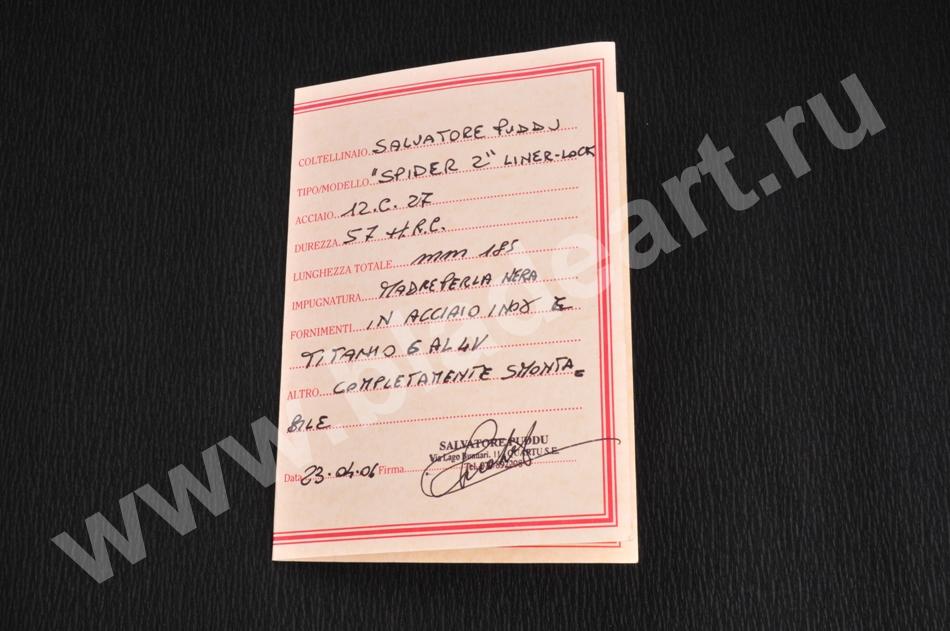 COLTELLINAIO SALVATORE PUDDU
TIPO/MODELLO "SPIDER 2" LINER-LOCK
ACCIAIO 12.C.27
DUREZZA 57 H.R.C.
LUNGHEZZA TOTALE mm 185
IMPUGNATURA MADREPERLA NERA
FORNIMENTI IN ACCIAIO INOX E
TITANIO 6 AL4V
ALTRO COMPLETAMENTE SMONTA=
BILE
SALVATORE PUDDU
Via Lago 11 QUARTU S.E.
Tel.
Data 23.04.06 Firma
www.bladeart.ru